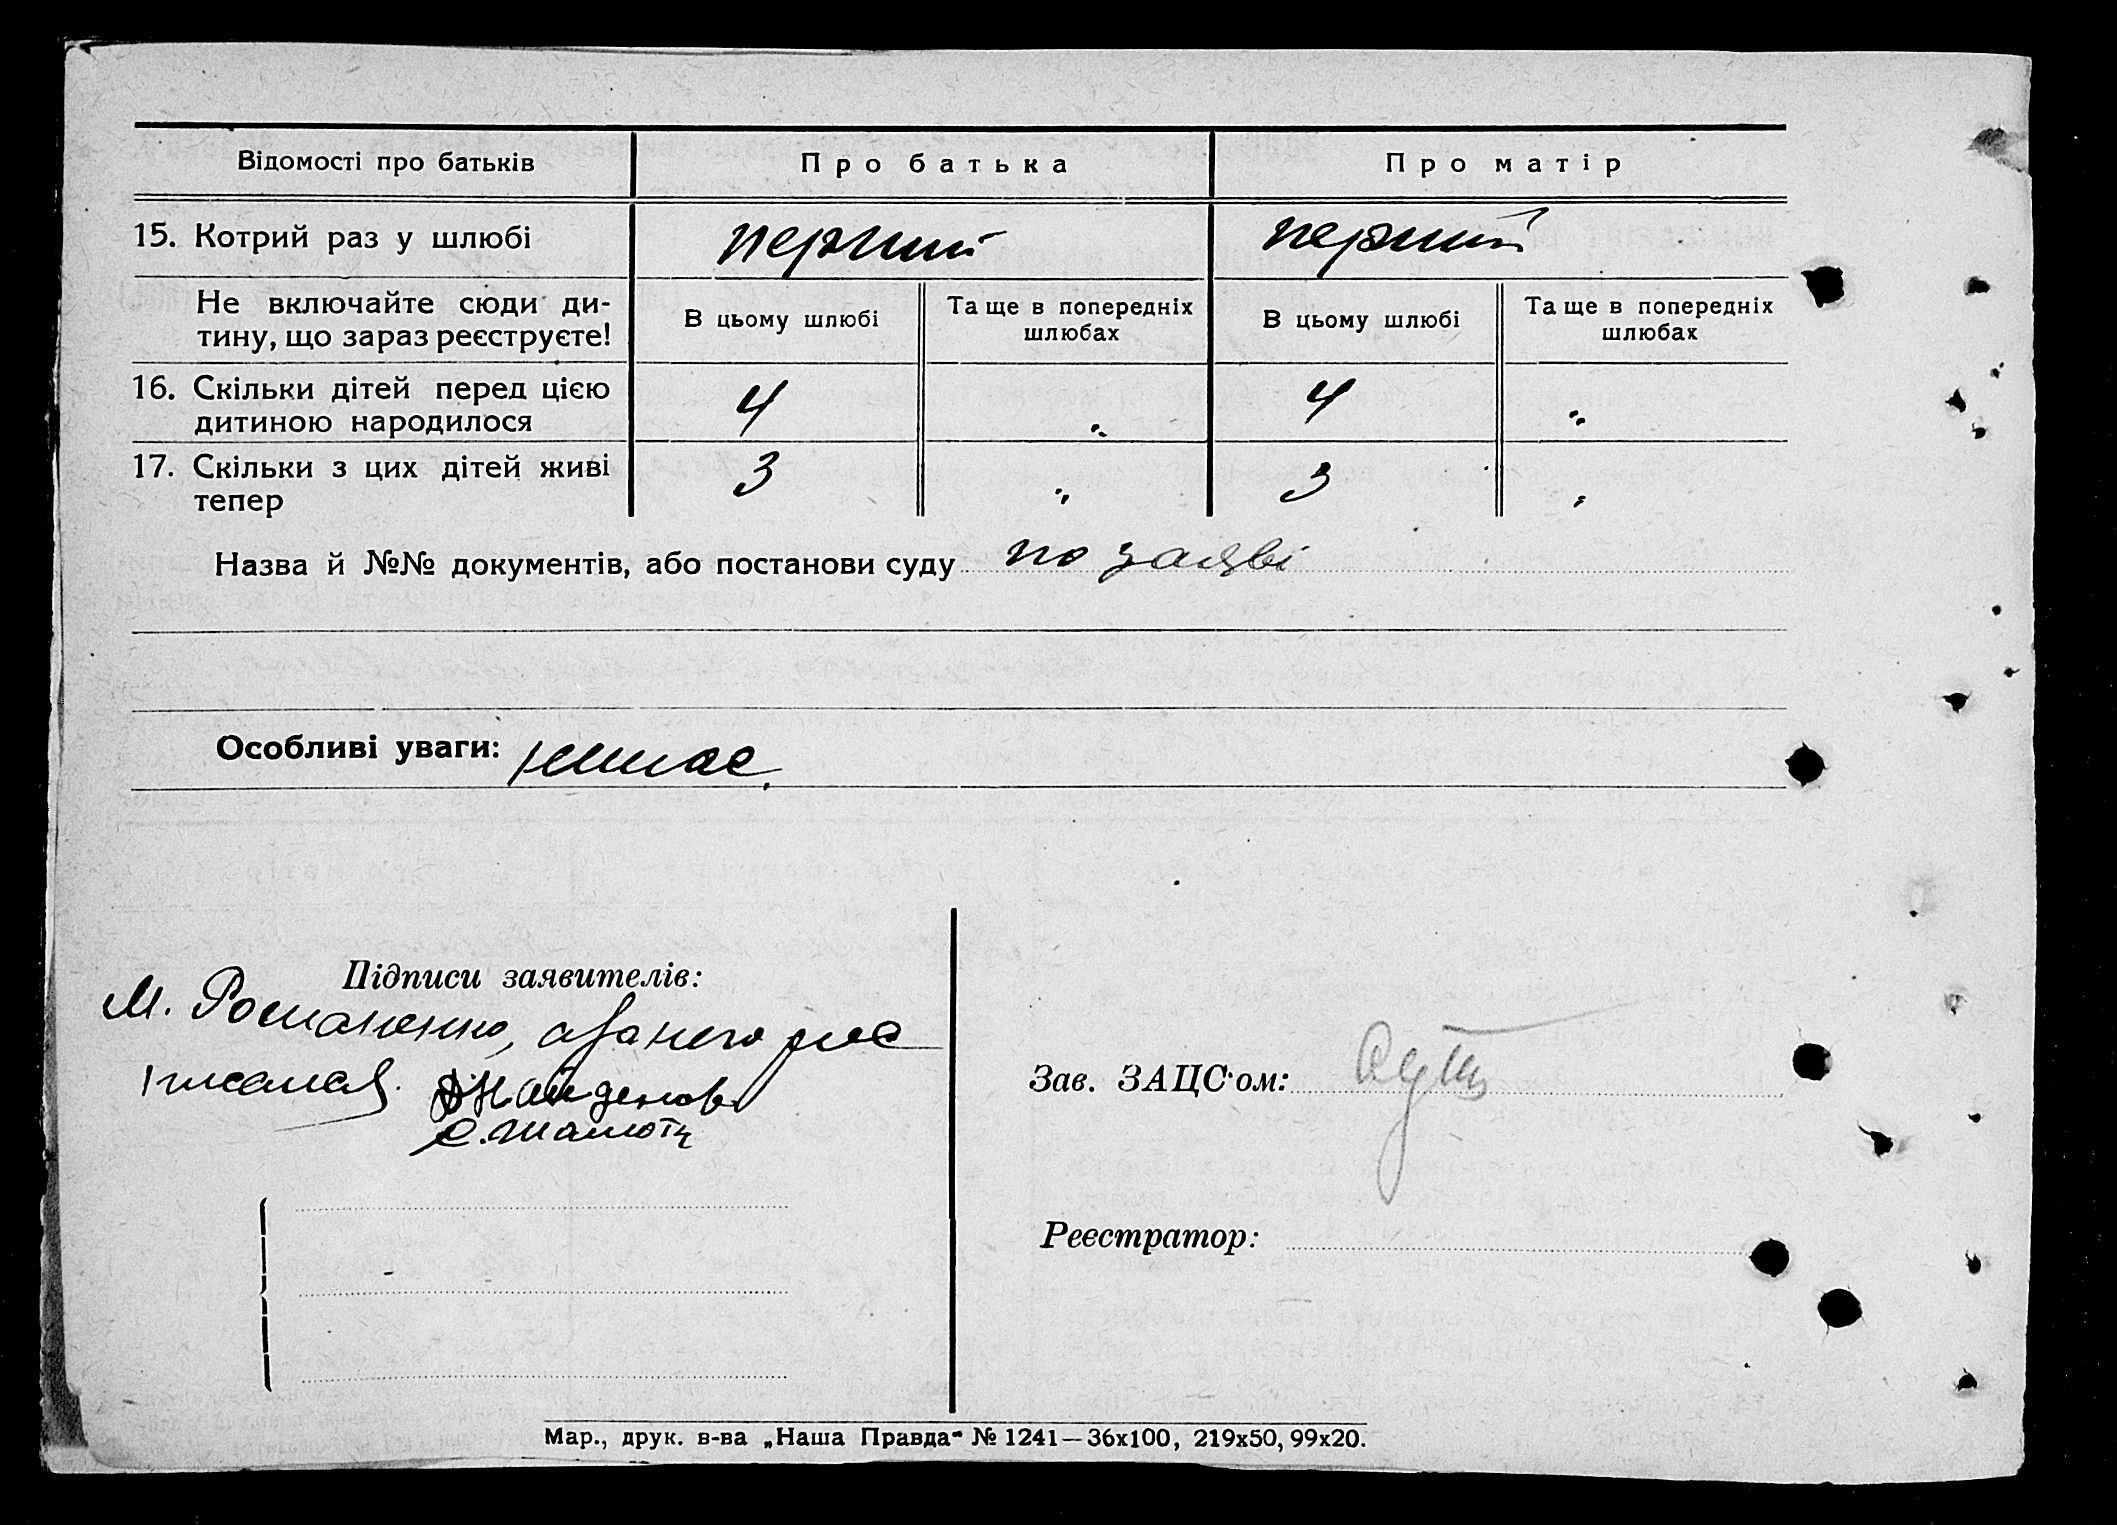 Відомості про батьків Про батька Про матір
15. Котрий раз у шлюбі перший перший
Не включайте сюди ди-
тину, що зараз реєструєте!
В цьому шлюбі
Та ще в попередніх
шлюбах
В цьому шлюбі
Та ще в попередніх
шлюбах
16. Скільки дітей перед цією
дитиною народилося
4 „ 4 „
17. Скільки з цих дітей живі
тепер
3 „ 3 „
Назва й №№ документів, або постанови суду по заяві
Особливі уваги: немає
Підписи заявителів:
М. Романенко,
Найденов
Е. Шамота
Зав. ЗАЦС'ом:
Реєстратор:
Мар., друк. в-ва „Наша Правда" № 1241—36х100, 219х50, 99х20.